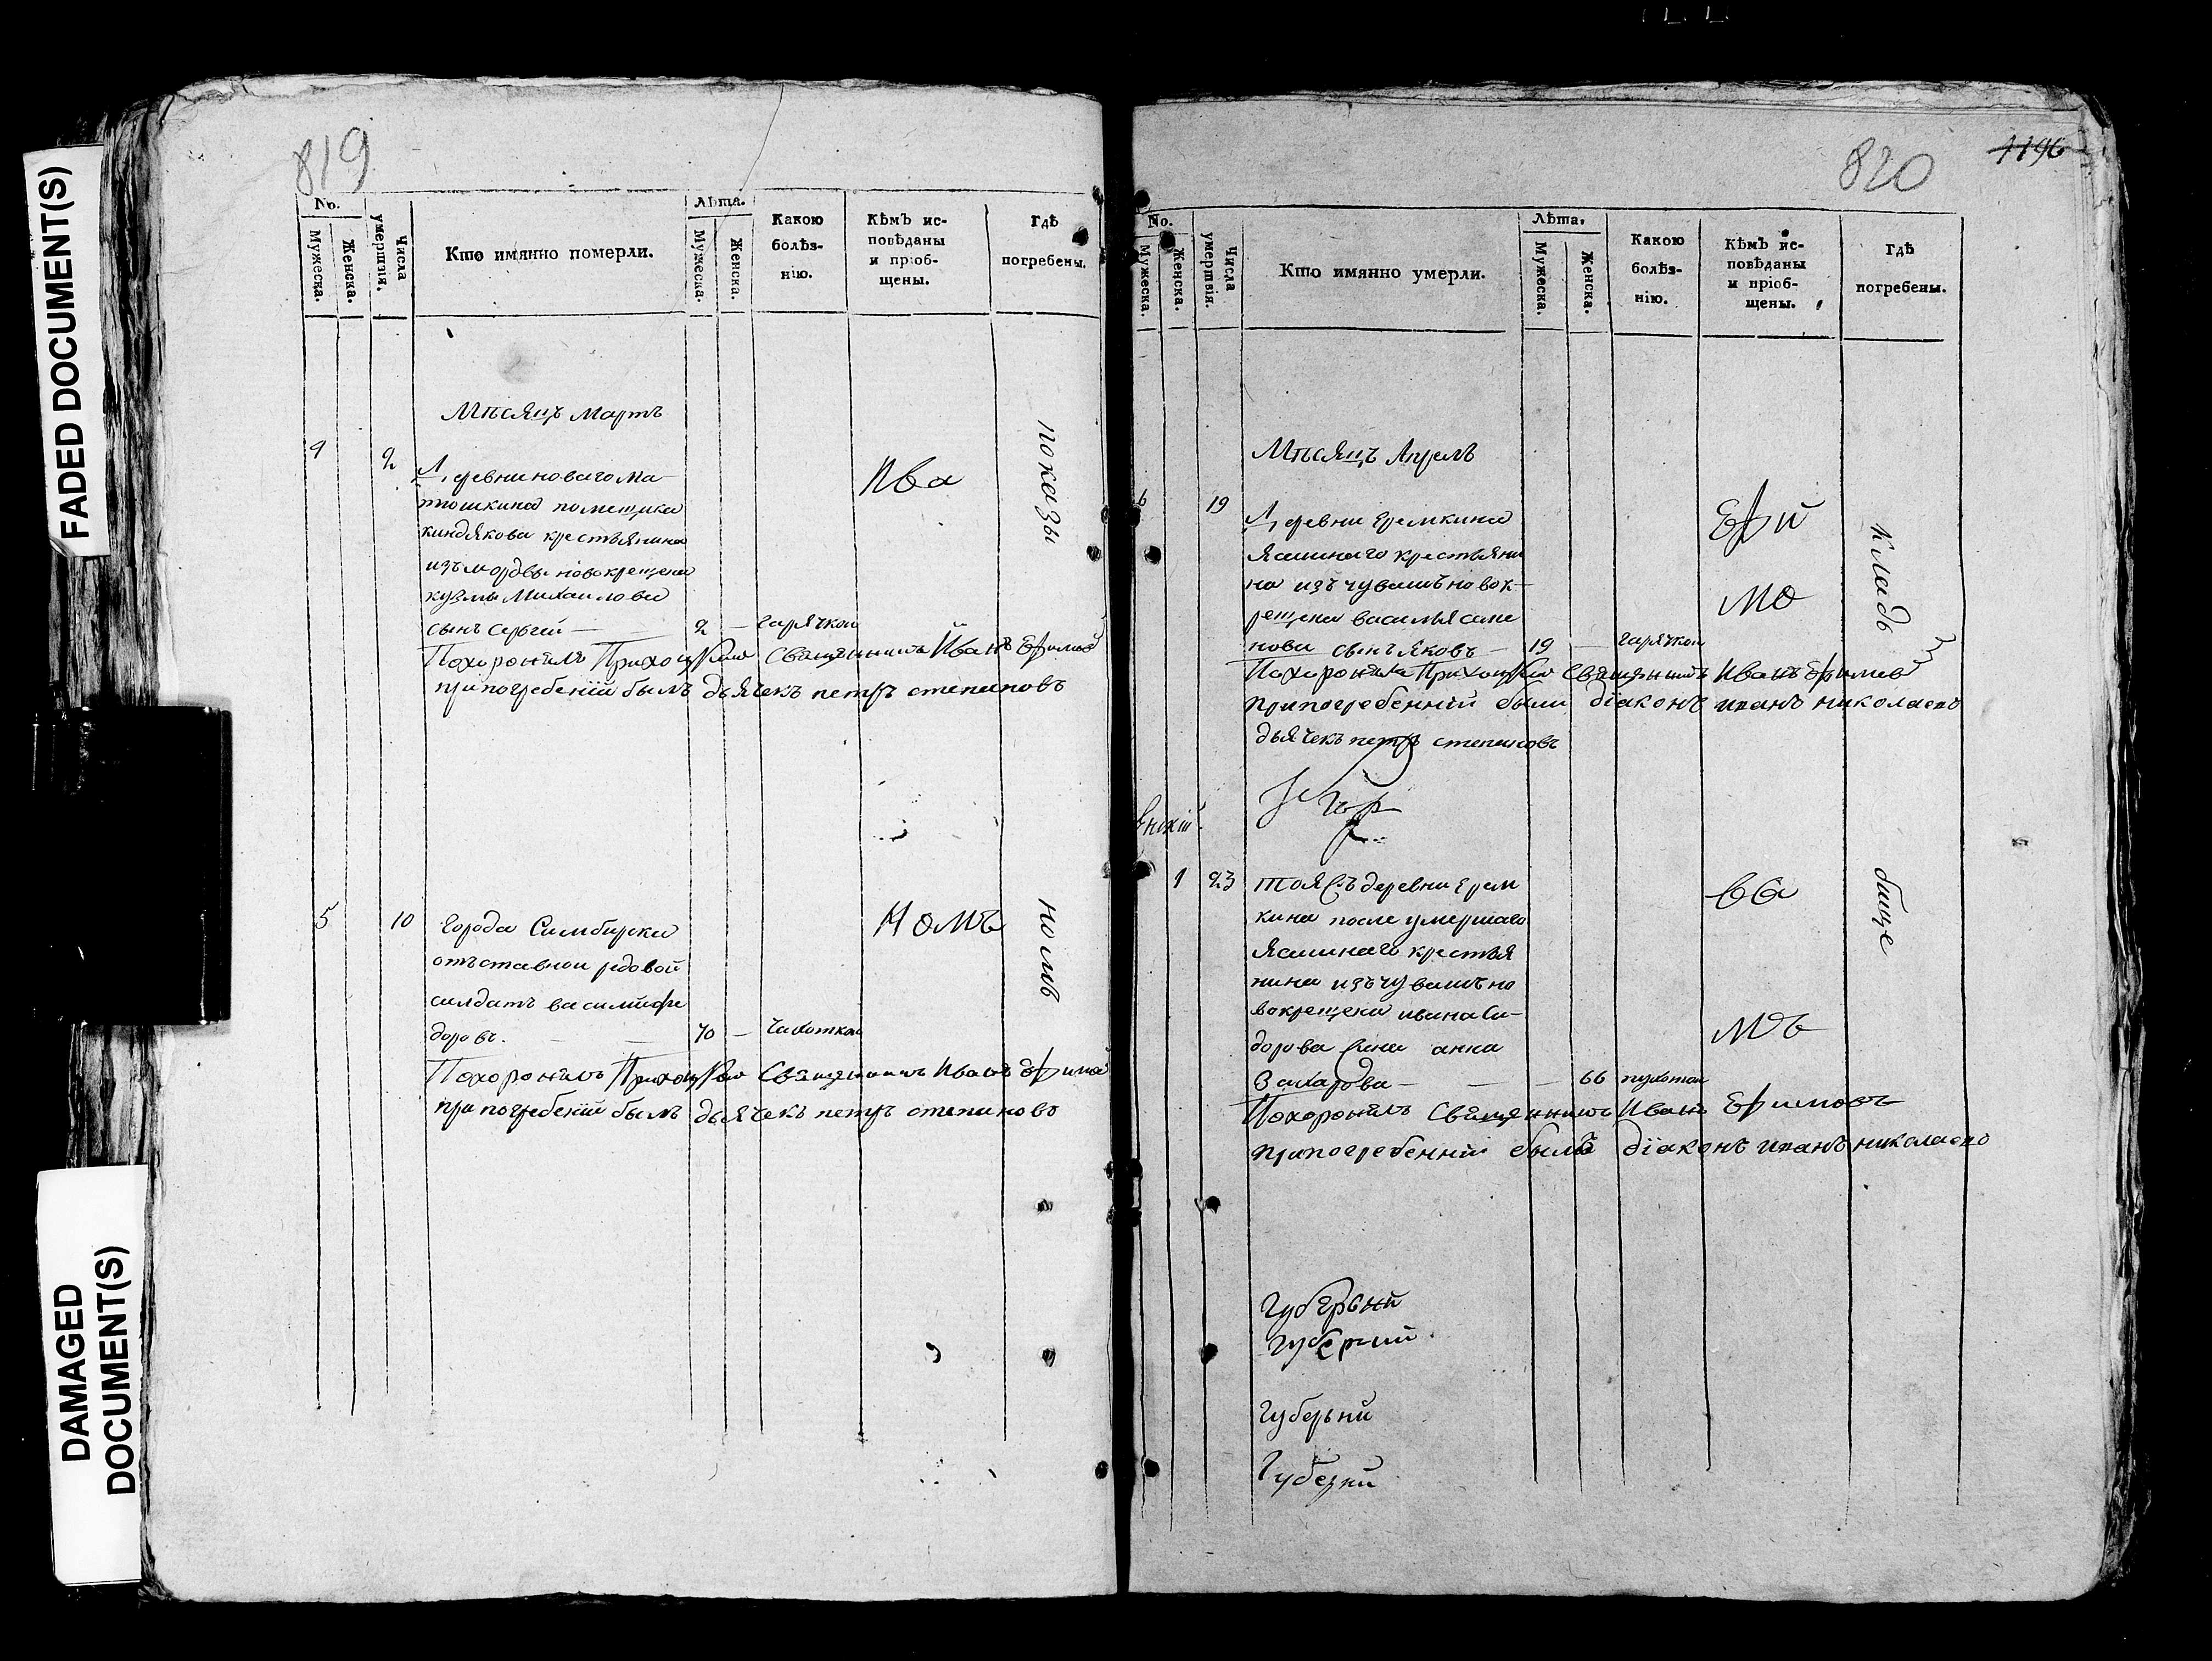 FAITHED DOCUMENT(S)
DAMAGED
DOCUMENT(S)
819
No.
Мужеска.
Женска.
Числа
умертвія.
Кто имянно померли.
Лѣта.
Мужеска.
Женска.
Какою
болѣз-
нію.
Кѣмъ ис-
повѣданы
и пріоб-
щены.
Гдѣ
погребены.
Мѣсяцъ Мартъ
2
Деревни новаго Ма-
тюшкина помещика
киндякова крестьянина
изъ мордвы новокрещена
кузмы Михаилова
сынъ сергей — 2 — гарячкой
Похоронилъ Приходской Священникъ Иванъ Ефимовъ
припогребении былъ дьячекъ петръ степановъ
Ива
показы
5 10
города Симбирска
отъставнои редовой
салдатъ василий фе
доровъ. — 70 — Чахоткой
Похоронилъ Приходской Священникъ Иванъ Ефимов
при погребении былъ дьячекъ петръ степановъ
номъ
820
1196
No.
Мужеска.
Женска.
Числа
умертвія.
Кто имянно умерли.
Лѣта.
Мужеска.
Женска.
Какою
болѣз-
нію.
Кѣмъ ис-
повѣданы
и пріоб-
щены.
Гдѣ
погребены.
Мѣсяцъ Апрель
6 19
Деревни Еремкина
Ясашнаго крестьяни
на изъ чувашъ новок-
рещена василья семе
нова сынъ яковъ — 19 — гарячкой
Похоронилъ Приходской Священникъ Иванъ Ефимов
припогребенній были діаконъ иванъ николаевъ
дьячекъ петръ степановъ
Ефи
мо
кладь
1 23
тоя съ деревни Ерем
кина после умершаго
Ясашнаго крестья
нина изъ чувашъ но
вокрещена ивана Си-
дорова жена анна
Захарова — 66
Похоронилъ Священникъ Иванъ Ефимовъ
припогребенній былъ діаконъ иванъ николаевъ
ва
мъ
бище
Губерьни
Губерний
Губерьни